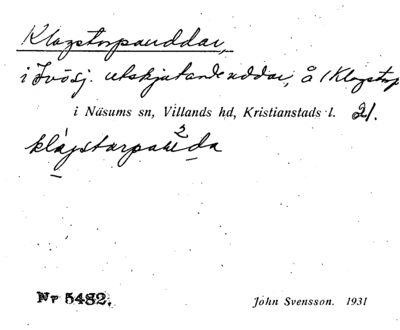 Klagstorpauddar,
i Ivösj. utskjutande uddar, å 1 Klagstorp
i Näsums sn, Villands hd, Kristianstads l. 21.
Nr 5482.
John Svensson. 1931